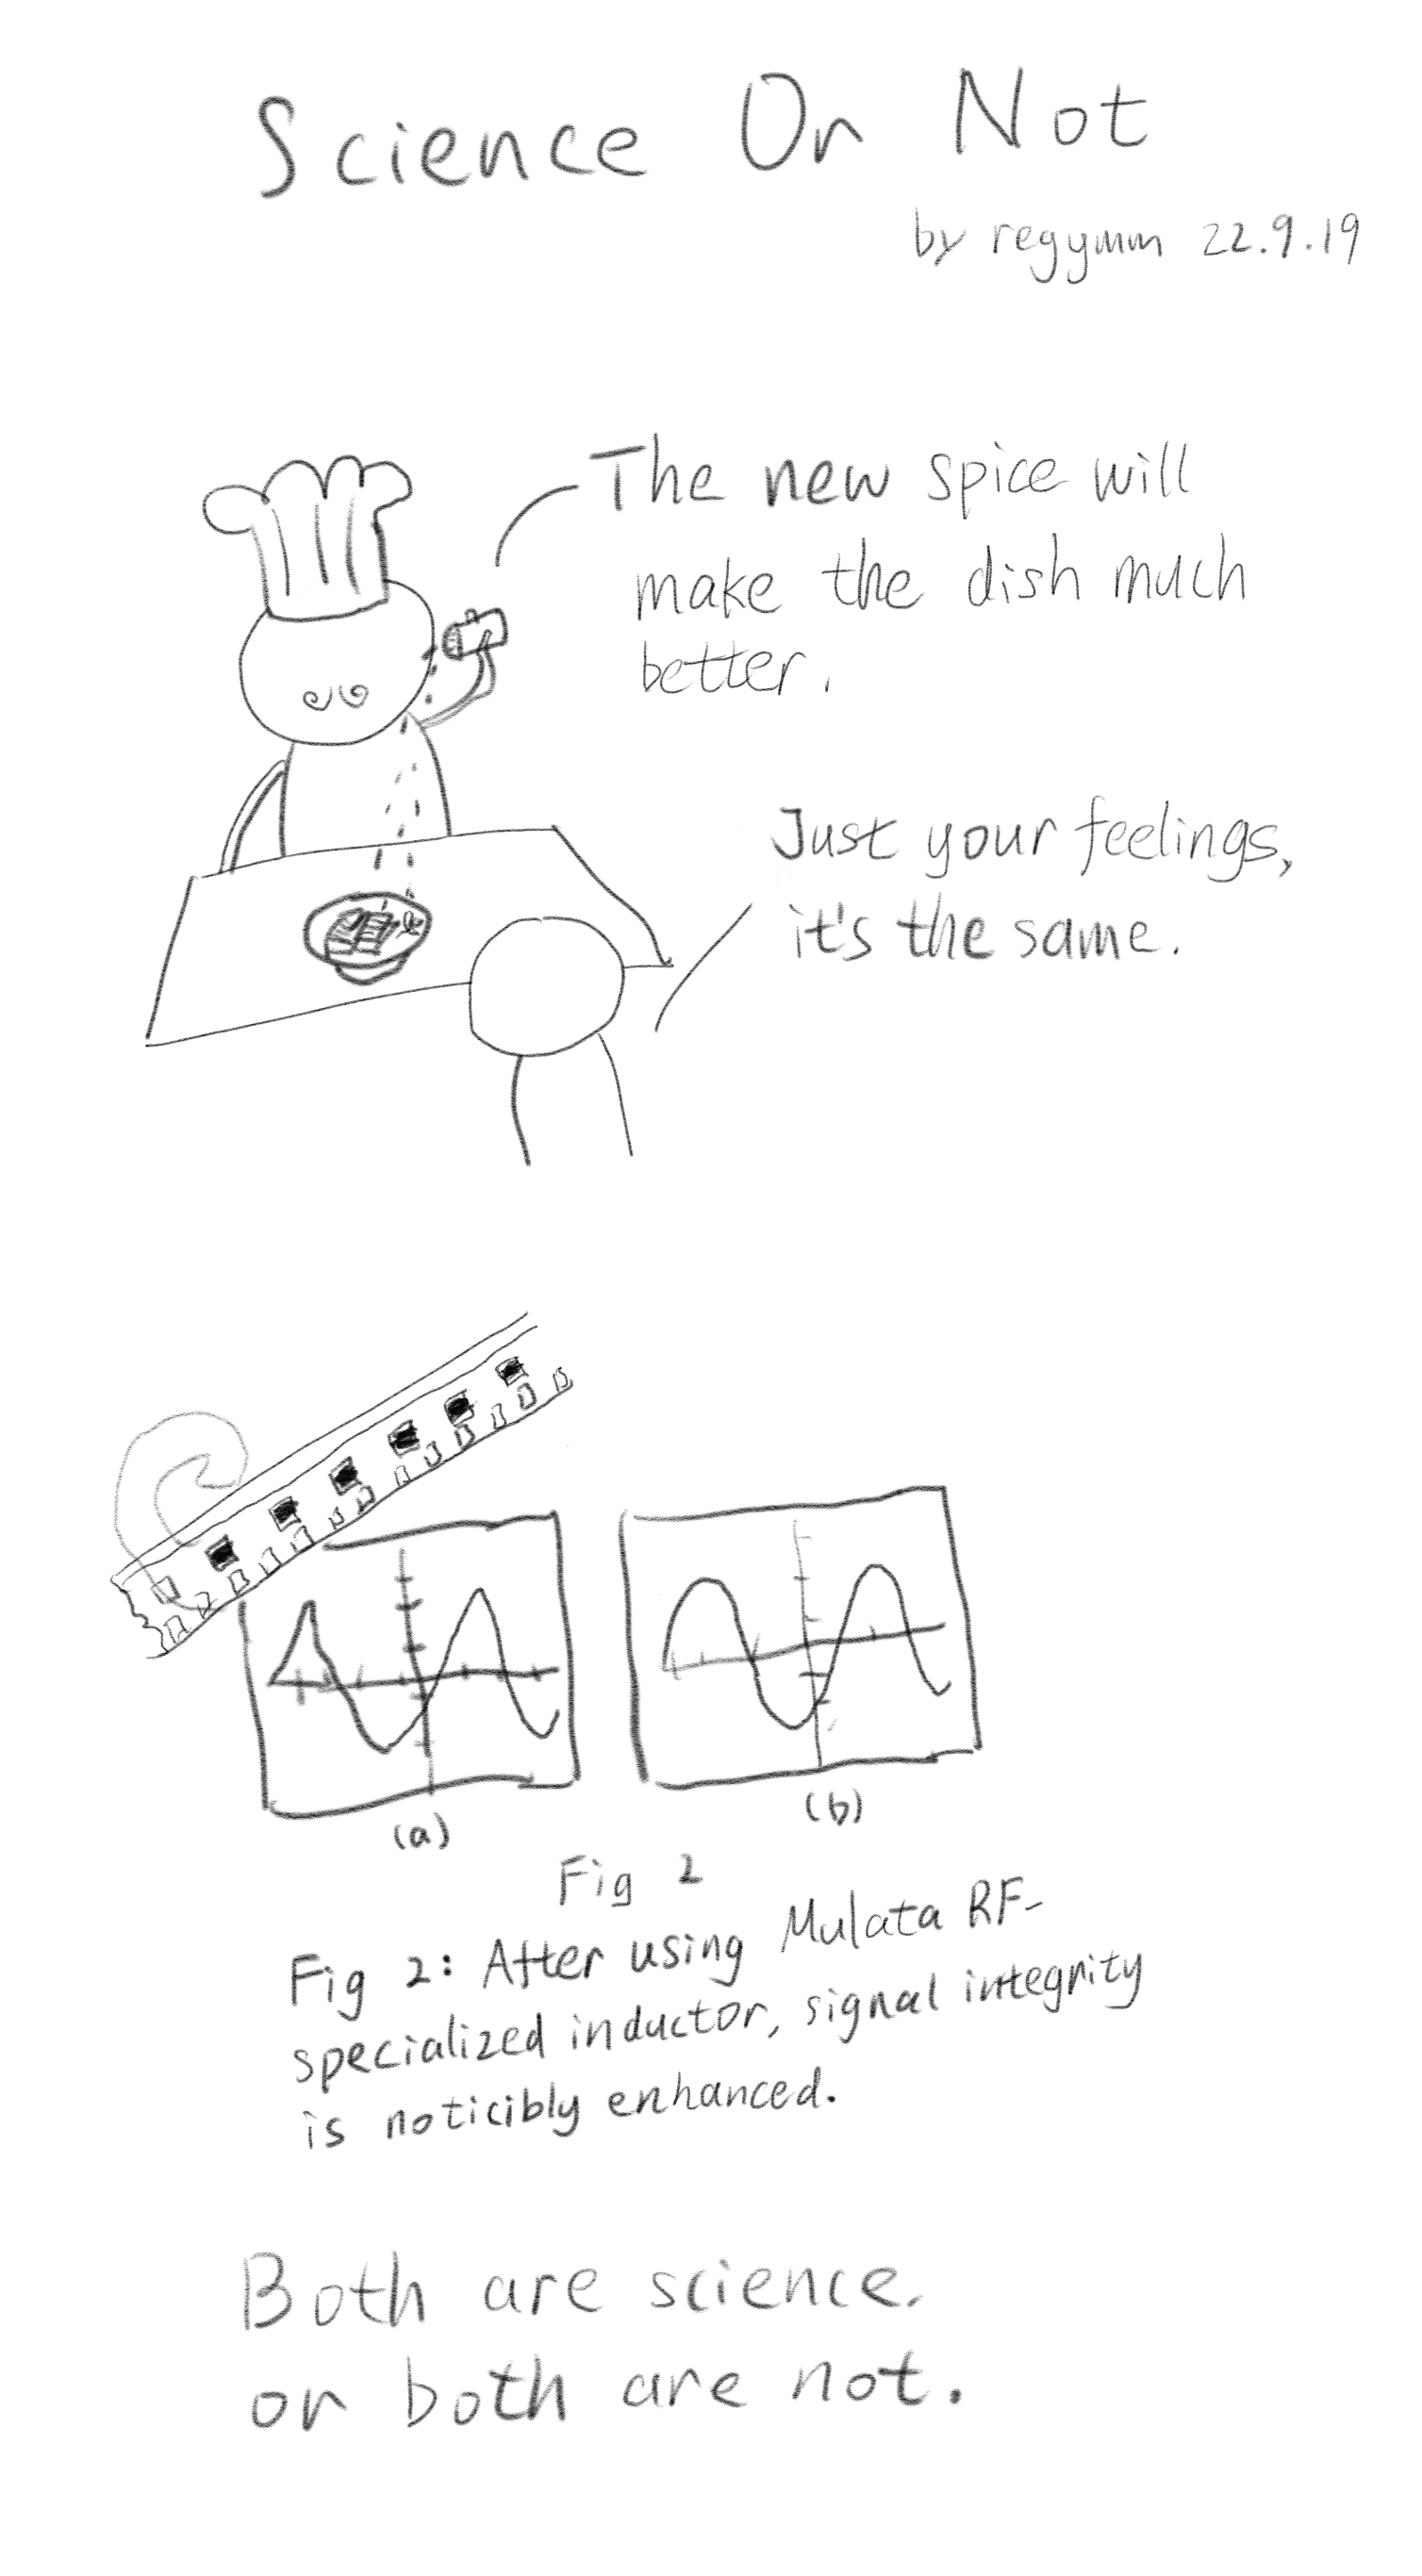 Science Or Not
by regymm 22.9.19
The new spice will
make the dish much
better.
Just your feelings,
it's the same.
(a)
(b)
Fig 2
Fig 2: After using Mulata RF-
specialized inductor, signal integrity
is noticibly enhanced.
Both are science.
or both are not.